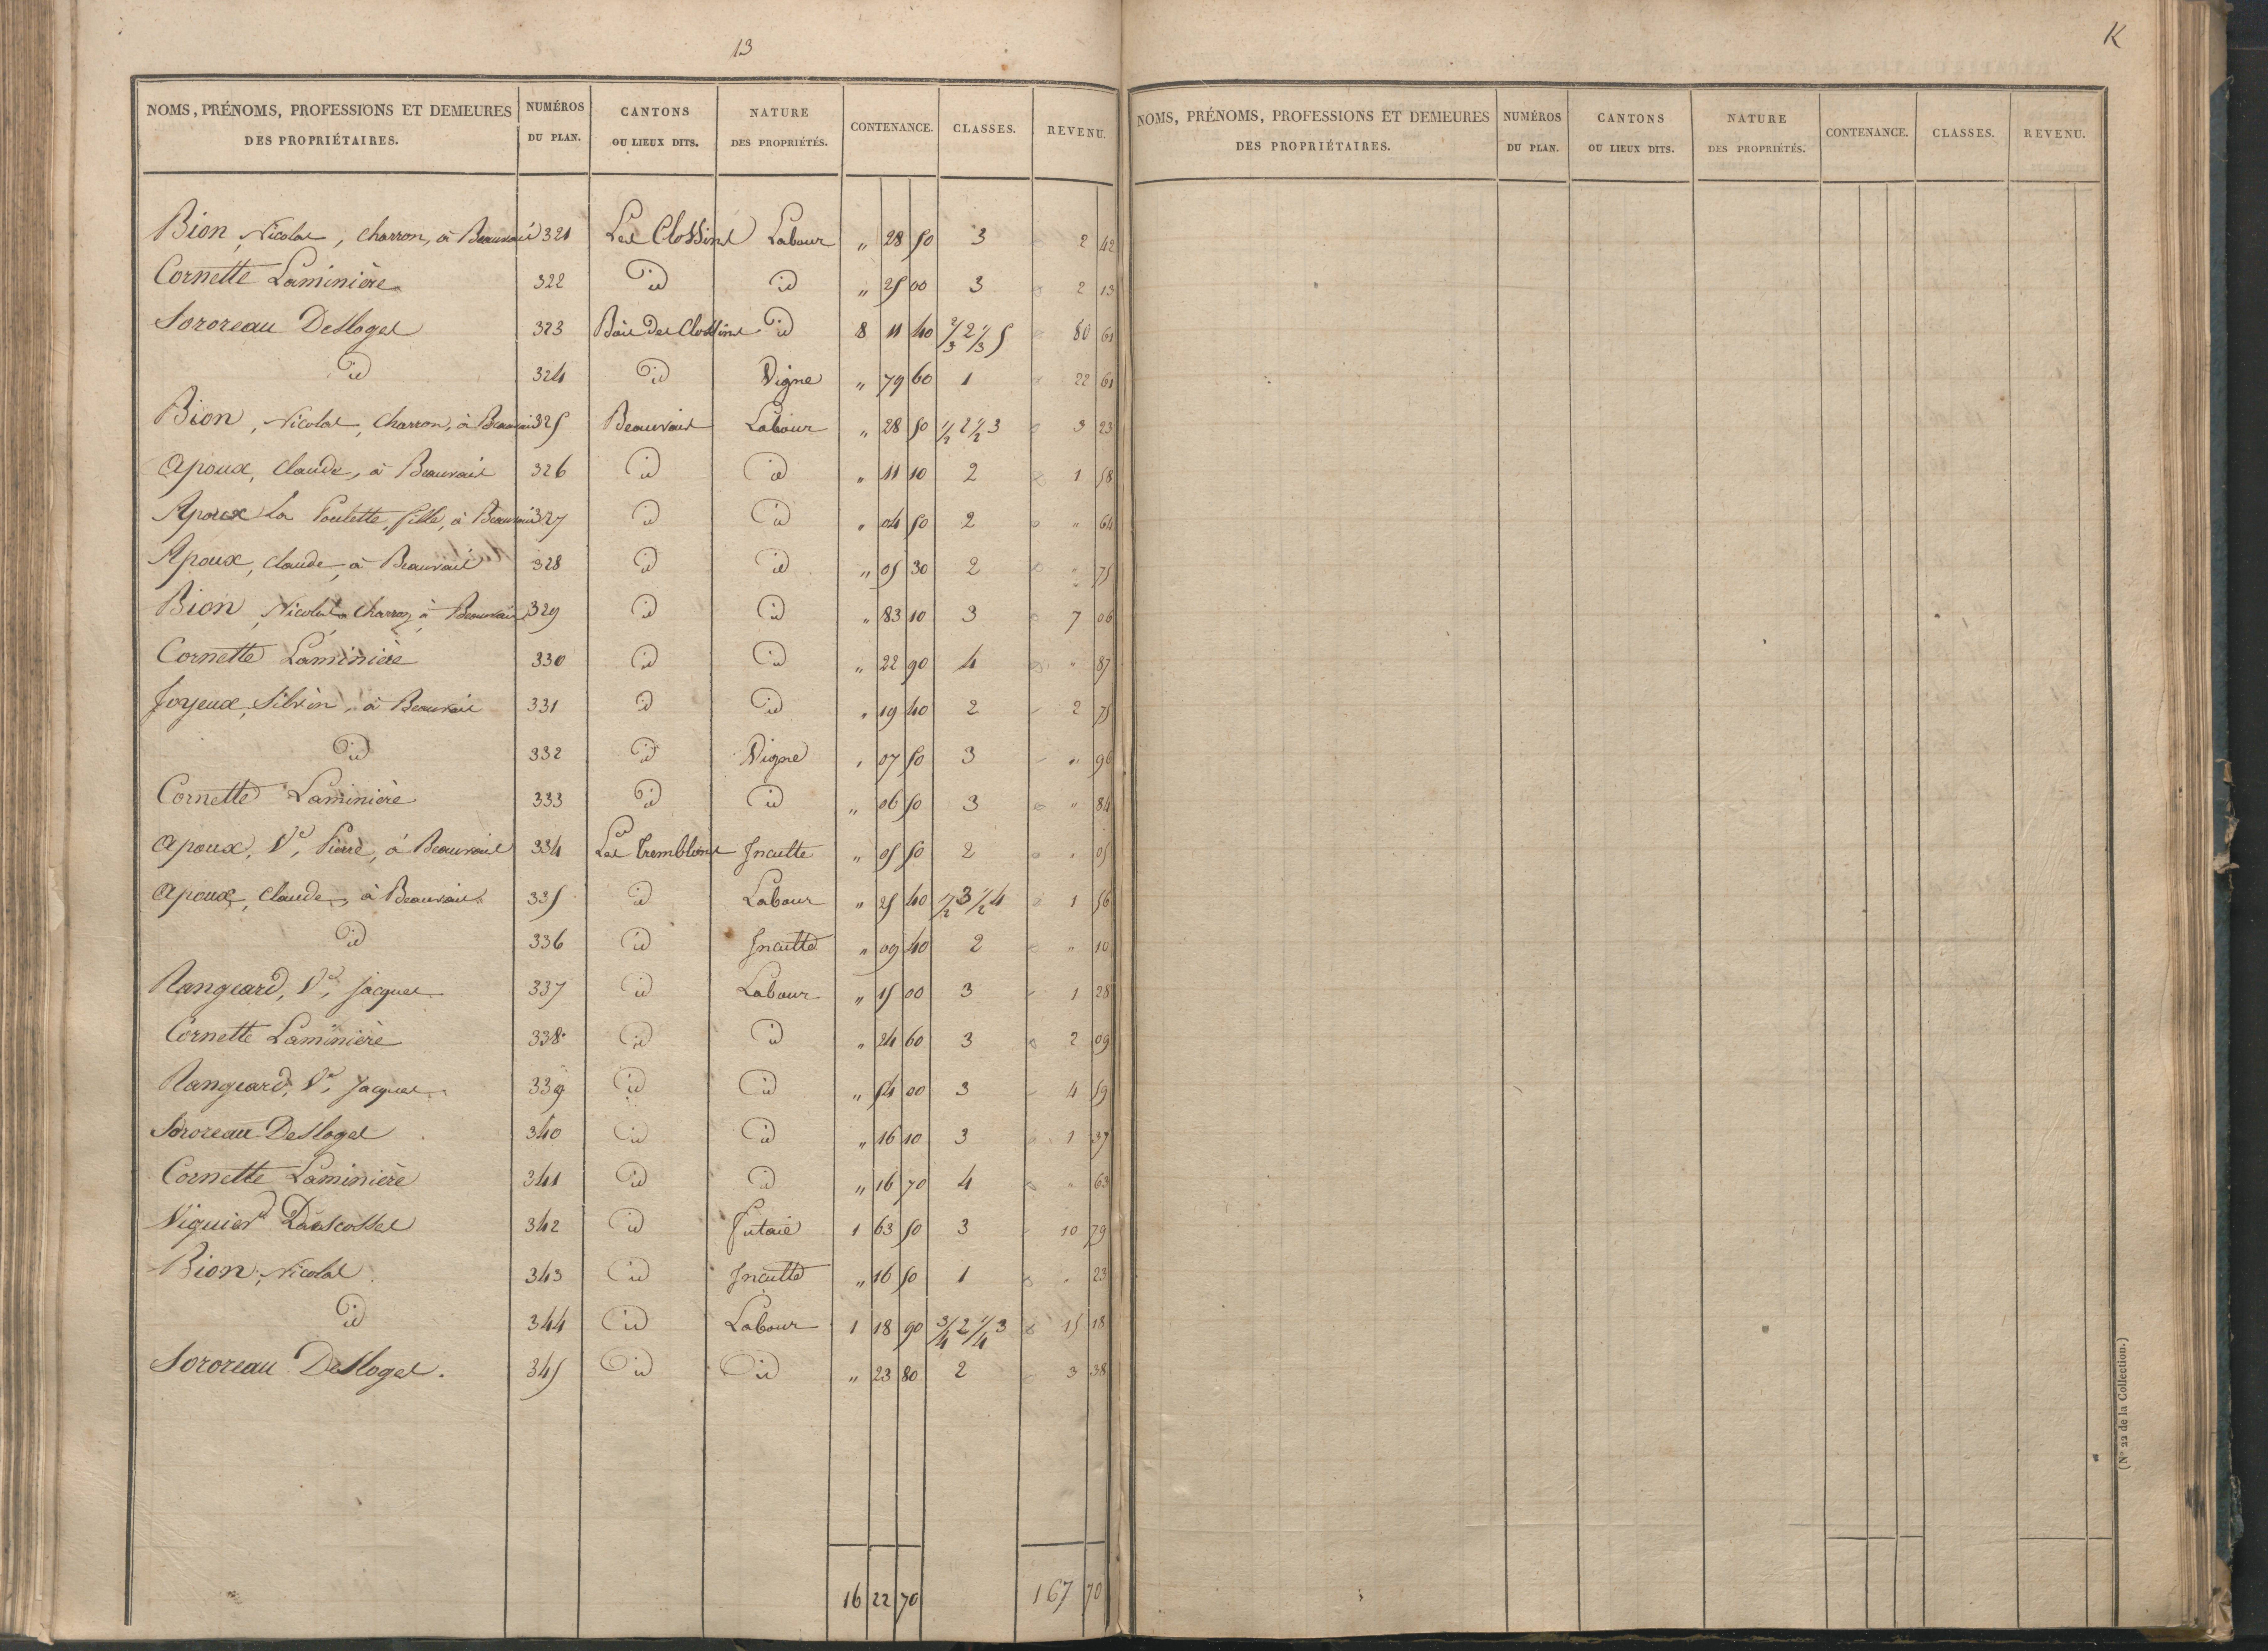 13
NOMS, PRÉNOMS, PROFESSIONS ET DEMEURES DES PROPRIÉTAIRES. NUMÉROS DU PLAN. CANTONS OU LIEUX DITS. NATURE DES PROPRIÉTÉS. CONTENANCE. CLASSES. REVENU.
Bion, Nicolas, charron, à Beauvais 321 Les Clossins Labour " 28 50 3 2 42
Cornette Laminière 322 id id " 25 00 3 2 13
Sororeau Desloges 323 Bois des Clossins id 8 11 40 2/3 2 1/3 5 80 61
id 324 id Vigne " 79 60 1 22 61
Bion, Nicolas, Charron, à Beauvais 325 Beauvais Labour " 28 50 1/2 2 1/2 3 3 23
Apoux, Claude, à Beauvais 326 id id " 11 10 2 1 58
Apoux La Poulette, fille, à Beauvais 327 id id " 04 50 2 " 64
Apoux, Claude, à Beauvais 328 id id " 05 30 2 " 75
Bion, Nicolas, Charron, à Beauvais 329 id id " 83 10 3 7 06
Cornette Laminière 330 id id " 22 90 4 " 87
Joyeux, Silvin, à Beauvais 331 id id " 19 40 2 2 75
id 332 id Vigne " 07 50 3 " 96
Cornette Laminière 333 id id " 06 50 3 " 84
Apoux, Ve, Pierre, à Beauvais 334 Les Tremblons Inculte " 05 50 2 " 05
Apoux, Claude, à Beauvais 335 id Labour " 25 40 1/2 3 1/2 4 1 56
id 336 id Inculte " 09 40 2 " 10
Rangeard, Ve, Jacques 337 id Labour " 15 00 3 1 28
Cornette Laminière 338 id id " 24 60 3 2 09
Rangeard, Ve, Jacques 339 id id " 54 00 3 4 59
Sororeau Desloges 340 id id " 16 10 3 1 37
Cornette Laminière 341 id id " 16 70 4 " 63
Viguier 342 id Futaie 1 63 50 3 10 79
Bion, Nicolas 343 id Inculte " 16 50 1 " 23
id 344 id Labour 1 18 90 3/4 2 1/4 3 15 18
Sororeau Desloges. 345 id id " 23 80 2 3 38
16 22 70 167 70
K
NOMS, PRÉNOMS, PROFESSIONS ET DEMEURES DES PROPRIÉTAIRES. NUMÉROS DU PLAN. CANTONS OU LIEUX DITS. NATURE DES PROPRIÉTÉS. CONTENANCE. CLASSES. REVENU.
(N° 22 de la Collection.)